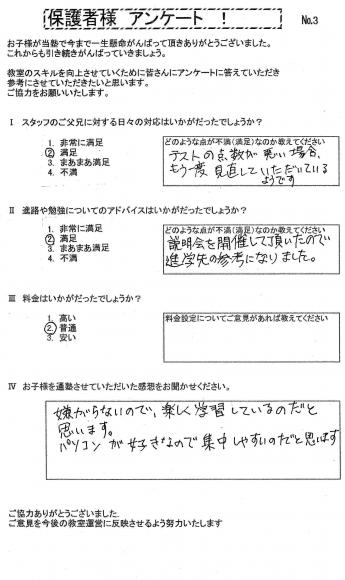 保護者様 アンケート ！
No.3
お子様が当塾で今まで一生懸命がんばって頂きありがとうございました。
これからも引き続きがんばっていきましょう。
教室のスキルを向上させていくために皆さんにアンケートに答えていただき
参考にさせていただきたいと思います。
ご協力をお願いいたします。
Ⅰ スタッフのご父兄に対する日々の対応はいかがだったでしょうか？
1. 非常に満足
② 満足
3. まあまあ満足
4. 不満
どのような点が不満(満足)なのか教えてください
テストの点数が悪い場合、
もう一度見直していただいている
ようです
Ⅱ 進路や勉強についてのアドバイスはいかがだったでしょうか？
1. 非常に満足
② 満足
3. まあまあ満足
4. 不満
どのような点が不満(満足)なのか教えてください
説明会を開催して頂いたので
進学先の参考になりました。
Ⅲ 料金はいかがだったでしょうか？
1. 高い
②. 普通
3. 安い
料金設定についてご意見があれば教えてください
Ⅳ お子様を通塾させていただいた感想をお聞かせください。
嫌がらないので、楽しく学習しているのだと
思います。
パソコンが好きなので集中しやすいのだと思います
ご協力ありがとうございました
ご意見を今後の教室運営に反映させるよう努力いたします